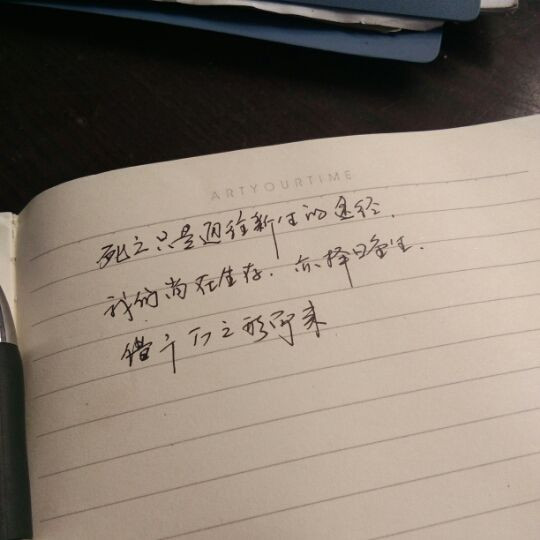 ARTYOURTIME
死亡只是通往新生的途径.
我们尚在生存. 亦择日重生.
借千万之形而来